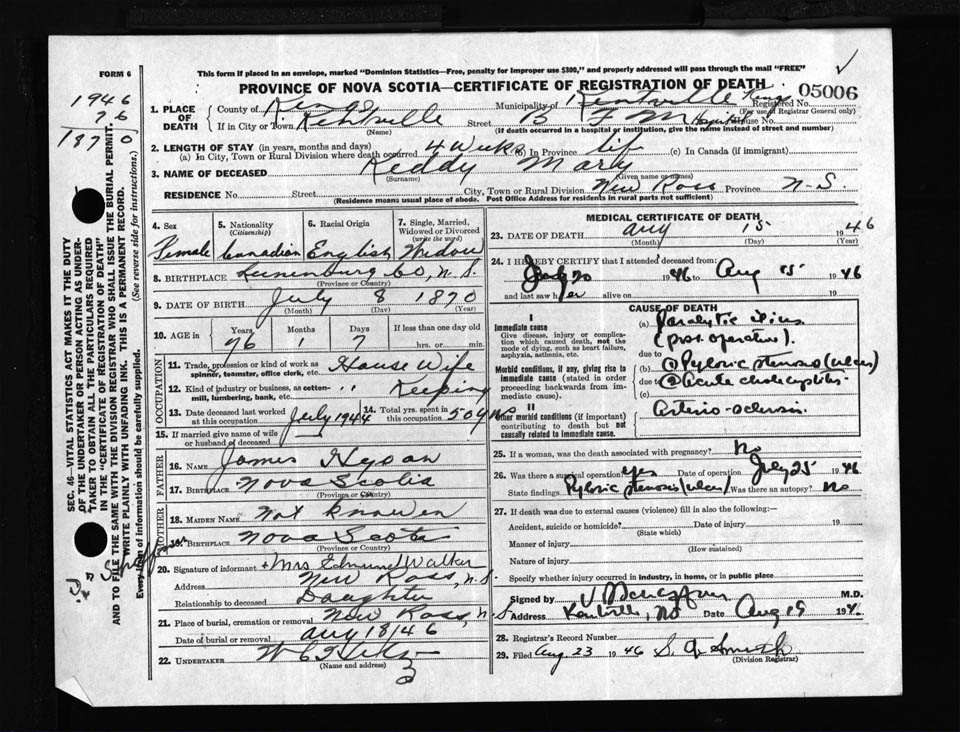 FORM 6
This form if placed in an envelope, marked "Dominion Statistics—Free, penalty for improper use $300," and properly addressed will pass through the mail "FREE"
PROVINCE OF NOVA SCOTIA—CERTIFICATE OF REGISTRATION OF DEATH
05006
Registered No.
(For use of Registrar General only)
1946
76
1870
1. PLACE OF DEATH
County of Kings Municipality of Kentville Kings
If in City or Town Kentville Street B F M Hospital House No.
(Name) (If death occurred in a hospital or institution, give the name instead of street and number)
2. LENGTH OF STAY (in years, months and days)
(a) In City, Town or Rural Division where death occurred 4 Weeks (b) In Province life (c) In Canada (if immigrant)
3. NAME OF DECEASED Keddy Mary
(Surname) (Given name or names)
RESIDENCE No. Street City, Town or Rural Division New Ross Province N-S.
(Residence means usual place of abode. Post Office Address for residents in rural parts not sufficient)
4. Sex
Female
5. Nationality (Citizenship)
Canadian
6. Racial Origin
English
7. Single, Married, Widowed or Divorced (write the word)
Widow
8. BIRTHPLACE Lunenburg Co, N.S.
(Province or Country)
9. DATE OF BIRTH July 8 1870
(Month) (Day) (Year)
10. AGE in
Years Months Days If less than one day old
76 1 7 hrs. or min.
OCCUPATION
11. Trade, profession or kind of work as spinner, teamster, office clerk, etc. House Wife
12. Kind of industry or business, as cotton-mill, lumbering, bank, etc. " Keeping
13. Date deceased last worked at this occupation July 1944 14. Total yrs. spent in this occupation 50 yrs
15. If married give name of wife or husband of deceased
FATHER
16. NAME James Hyson
17. BIRTHPLACE Nova Scotia
(Province or Country)
MOTHER
18. MAIDEN NAME Not Knowen
19. BIRTHPLACE Nova Scotia
(Province or Country)
20. Signature of informant + Mrs Edmund Walker
Address New Ross, N.S
Relationship to deceased Daughter
21. Place of burial, cremation or removal New Ross, N.S
Date of burial or removal Aug 18/46
22. UNDERTAKER
(Name and address)
MEDICAL CERTIFICATE OF DEATH
23. DATE OF DEATH Aug 15 1946
(Month) (Day) (Year)
24. I HEREBY CERTIFY that I attended deceased from:
July 20 1946 to Aug 15 1946
and last saw her alive on 19
CAUSE OF DEATH
I
Immediate cause
Give disease, injury or complication which caused death, not the mode of dying, such as heart failure, asphyxia, asthenia, etc.
Morbid conditions, if any, giving rise to immediate cause (stated in order proceeding backwards from immediate cause).
II
Other morbid conditions (if important) contributing to death but not causally related to immediate cause.
(a) Paralytic Ileus
(post operative).
due to
(b) Pyloric stenosis (ulcer)
due to Acute cholecystitis.
(c)
Arterio-sclerosis.
25. If a woman, was the death associated with pregnancy? No
26. Was there a surgical operation? yes Date of operation July 25 1946
State findings Pyloric stenosis (ulcer) Was there an autopsy? No
27. If death was due to external causes (violence) fill in also the following:—
Accident, suicide or homicide? Date of injury 19
(State which)
Manner of injury
(How sustained)
Nature of injury
Specify whether injury occurred in industry, in home, or in public place
Signed by M.D.
Address Kentville, NS Date Aug 19 1946
28. Registrar's Record Number
29. Filed Aug 23 1946 S. Q. Smith
(Division Registrar)
SEC. 46—VITAL STATISTICS ACT MAKES IT THE DUTY OF THE UNDERTAKER OR PERSON ACTING AS UNDERTAKER TO OBTAIN ALL THE PARTICULARS REQUIRED IN THE "CERTIFICATE OF REGISTRATION OF DEATH" AND TO FILE THE SAME WITH THE DIVISION REGISTRAR WHO SHALL ISSUE THE BURIAL PERMIT.
WRITE PLAINLY WITH UNFADING INK. THIS IS A PERMANENT RECORD.
Every item of information should be carefully supplied. (See reverse side for instructions.)